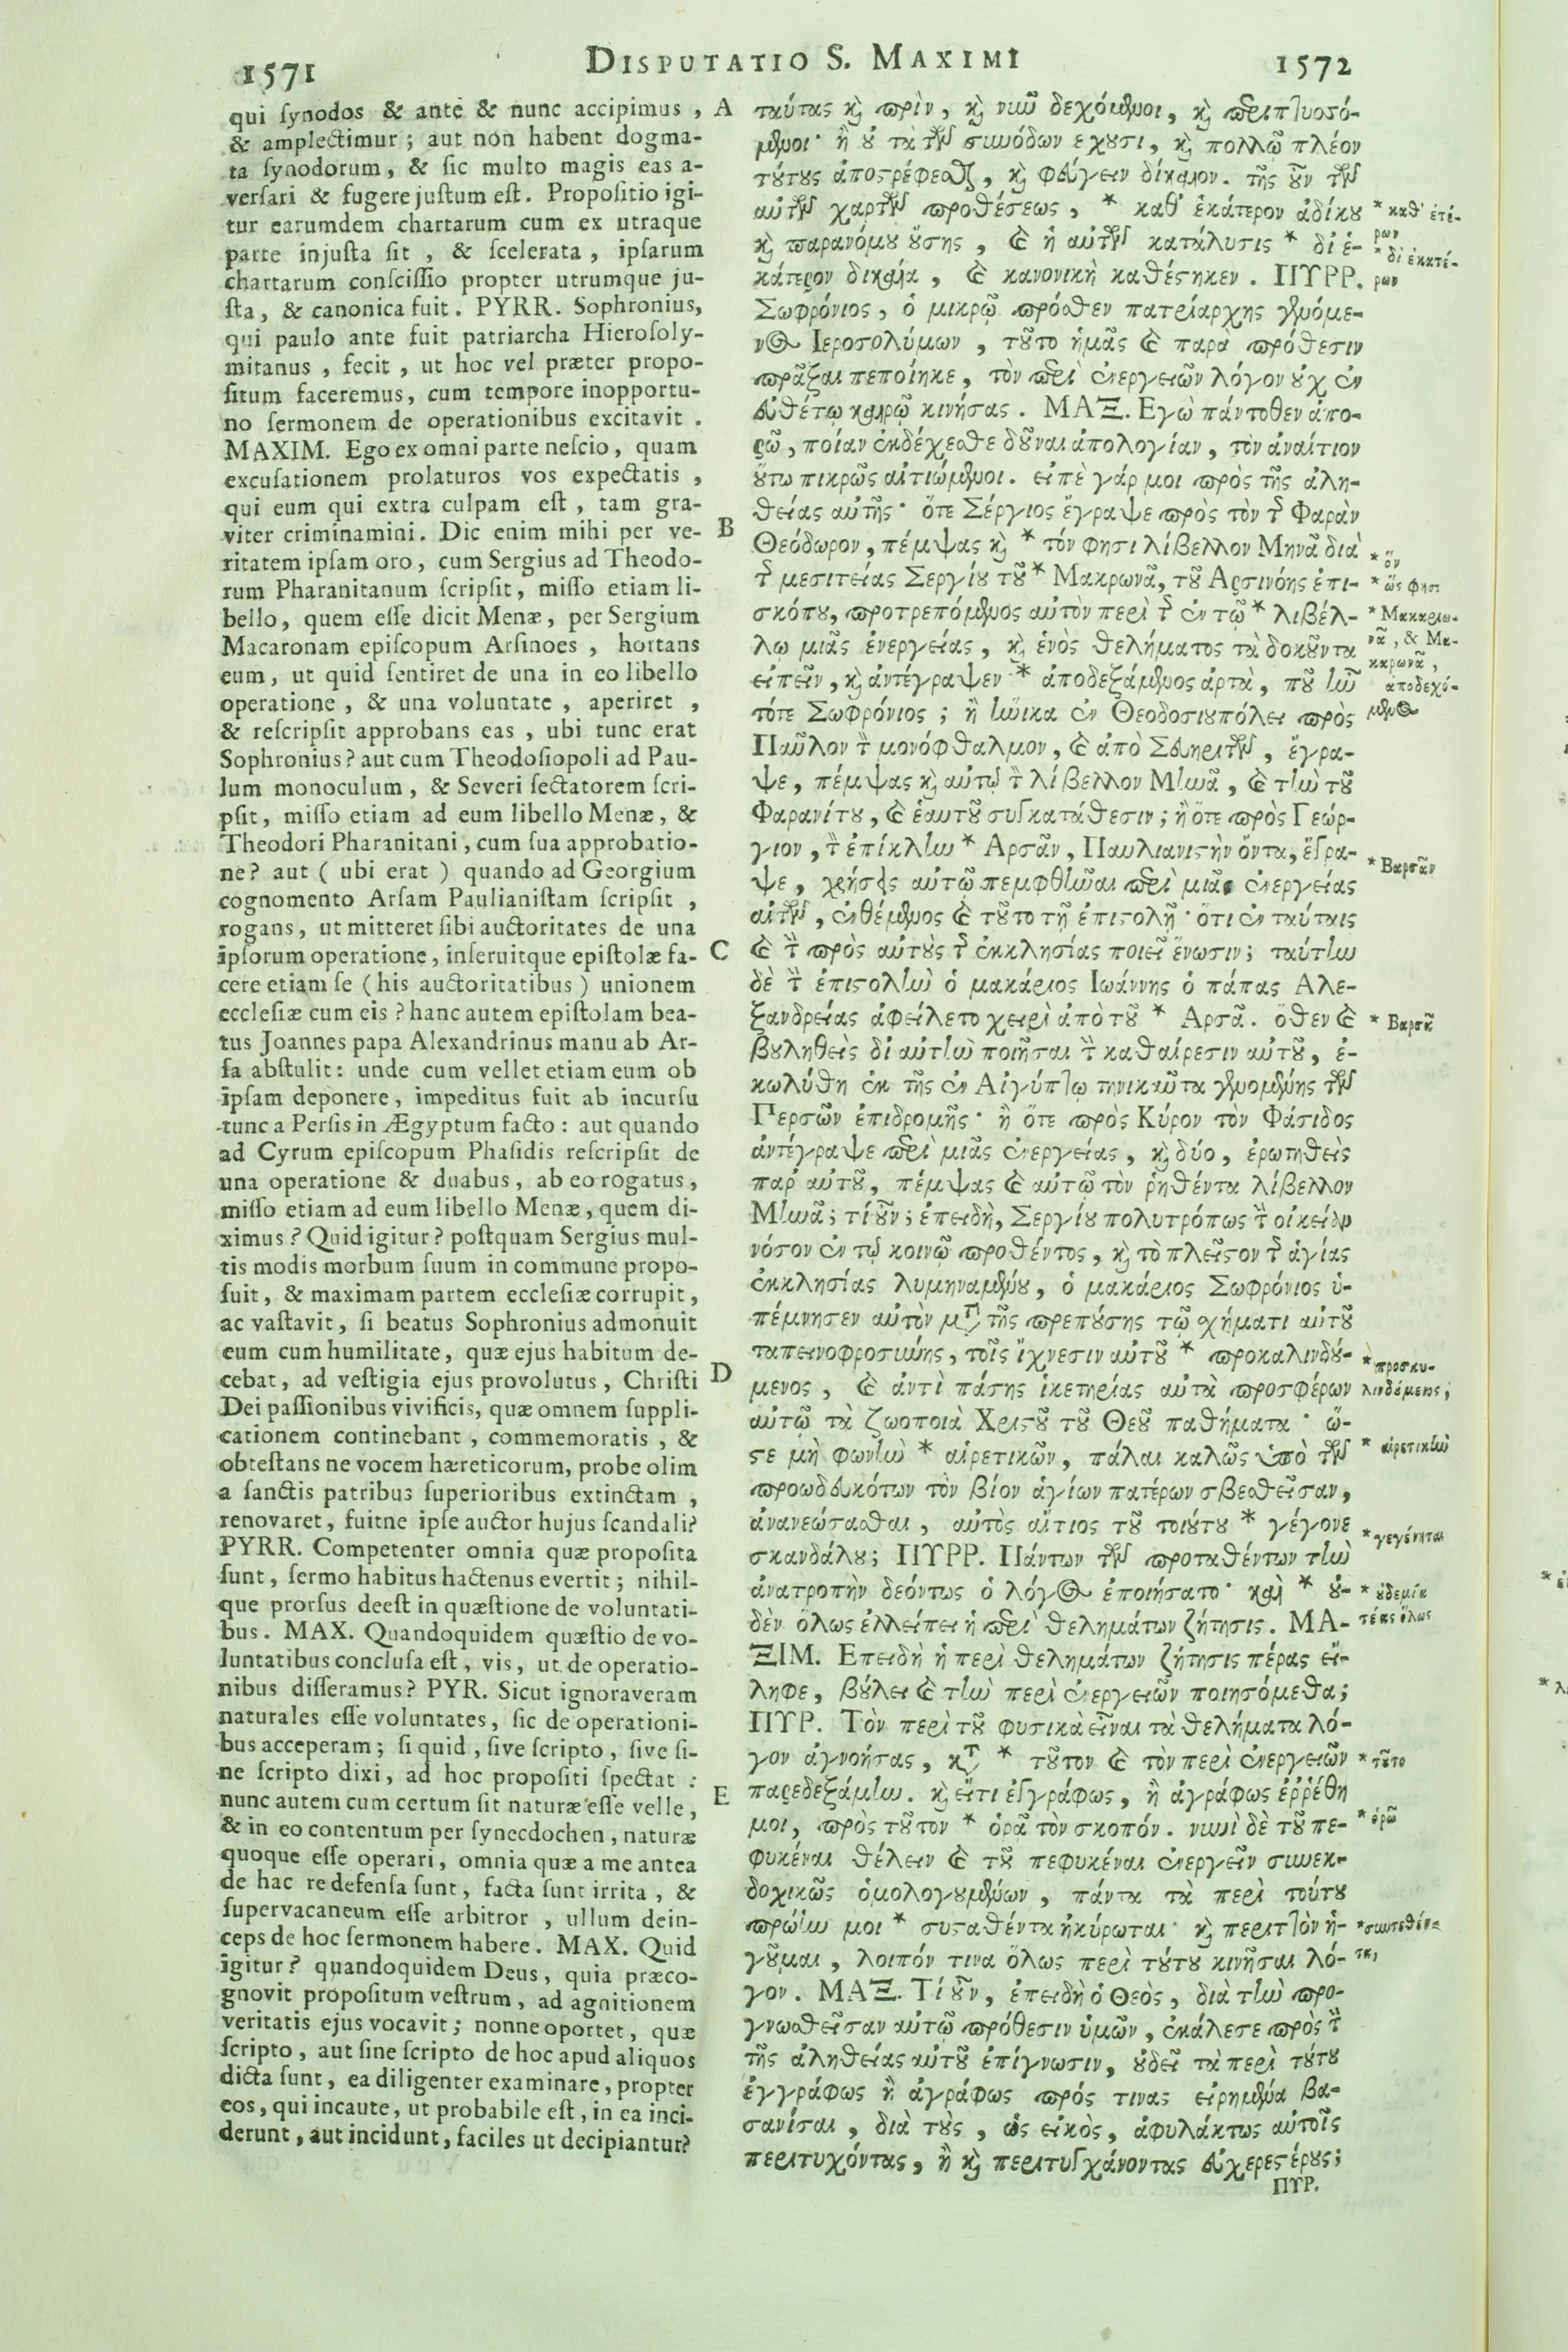 1571
DISPUTATIO S. MAXIMI
1572
qui ſynodos & ante & nunc accipimus,
& amplectimur; aut non habent dogma-
ta ſynodorum, & ſic multo magis eas a-
verſari & fugere juſtum eſt. Propoſitio igi-
tur earumdem chartarum cum ex utraque
parte injuſta ſit, & ſcelerata, ipſarum
chartarum conſciſſio propter utrumque ju-
ſta, & canonica fuit. PYRR. Sophronius,
qui paulo ante fuit patriarcha Hieroſoly-
mitanus, fecit, ut hoc vel præter propo-
ſitum faceremus, cum tempore inopportu-
no ſermonem de operationibus excitavit.
MAXIM. Ego ex omni parte neſcio, quam
excuſationem prolaturos vos expectatis,
qui eum qui extra culpam eſt, tam gra-
viter criminamini. Dic enim mihi per ve-
ritatem ipſam oro, cum Sergius ad Theodo-
rum Pharanitanum ſcripſit, miſſo etiam li-
bello, quem eſſe dicit Menæ, per Sergium
Macaronam epiſcopum Arſinoes, hortans
eum, ut quid ſentiret de una in eo libello
operatione, & una voluntate, aperiret,
& reſcripſit approbans eas, ubi tunc erat
Sophronius? aut cum Theodoſiopoli ad Pau-
lum monoculum, & Severi ſectatorem ſcri-
pſit, miſſo etiam ad eum libello Menæ, &
Theodori Pharanitani, cum ſua approbatio-
ne? aut (ubi erat) quando ad Georgium
cognomento Arſam Paulianiſtam ſcripſit,
rogans, ut mitteret ſibi auctoritates de una
ipſorum operatione, inſeruitque epiſtolæ fa-
cere etiam ſe (his auctoritatibus) unionem
eccleſiæ cum eis? hanc autem epiſtolam bea-
tus Joannes papa Alexandrinus manu ab Ar-
ſa abſtulit: unde cum vellet etiam eum ob
ipſam deponere, impeditus fuit ab incurſu
tunc a Perſis in Ægyptum facto: aut quando
ad Cyrum epiſcopum Phaſidis reſcripſit de
una operatione & duabus, ab eo rogatus,
miſſo etiam ad eum libello Menæ, quem di-
ximus? Quid igitur? poſtquam Sergius mul-
tis modis morbum ſuum in commune propo-
ſuit, & maximam partem eccleſiæ corrupit,
ac vaſtavit, ſi beatus Sophronius admonuit
eum cum humilitate, quæ ejus habitum de-
cebat, ad veſtigia ejus provolutus, Chriſti
Dei paſſionibus vivificis, quæ omnem ſuppli-
cationem continebant, commemoratis, &
obteſtans ne vocem hæreticorum, probe olim
a ſanctis patribus ſuperioribus extinctam,
renovaret, fuitne ipſe auctor hujus ſcandali?
PYRR. Competenter omnia quæ propoſita
ſunt, ſermo habitus hactenus evertit; nihil-
que prorſus deeſt in quæſtione de voluntati-
bus. MAX. Quandoquidem quæſtio de vo-
luntatibus concluſa eſt, vis, ut de operatio-
nibus diſſeramus? PYR. Sicut ignoraveram
naturales eſſe voluntates, ſic de operationi-
bus acceperam; ſi quid, ſive ſcripto, ſive ſi-
ne ſcripto dixi, ad hoc propoſiti ſpectat:
nunc autem cum certum ſit naturæ eſſe velle,
& in eo contentum per ſynecdochen, naturæ
quoque eſſe operari, omnia quæ a me antea
de hac re defenſa ſunt, facta ſunt irrita, &
ſupervacaneum eſſe arbitror, ullum dein-
ceps de hoc ſermonem habere. MAX. Quid
igitur? quandoquidem Deus, quia præco-
gnovit propoſitum veſtrum, ad agnitionem
veritatis ejus vocavit; nonne oportet, quæ
ſcripto, aut ſine ſcripto de hoc apud aliquos
dicta ſunt, ea diligenter examinare, propter
eos, qui incaute, ut probabile eſt, in ea inci-
derunt, aut incidunt, faciles ut decipiantur?
A
B
C
D
E
ταύτας καὶ πρὶν, καὶ νῦν δεχόμενοι, καὶ περιπτυοσό-
μενοι· ἢ οὐ τὰ τῶν συνόδων εχουσι, καὶ πολλῷ πλέον
τούτους ἀποςρέφεσθαι, καὶ φεύγειν δίκαιον. τῆς οὖν τῶν
αὐτῶν χαρτῶν προθέσεως, * καθ' ἑκάτερον ἀδίκου
καὶ παρανόμου οὔσης, καὶ ἡ αὐτῶν κατάλυσις * δι' ἑ-
κάτερον δικαία, καὶ κανονικὴ καθέςηκεν. ΠΥΡΡ.
Σωφρόνιος, ὁ μικρῷ πρόσθεν πατριάρχης γενόμε-
νος Ιεροσολύμων, τοῦτο ἡμᾶς καὶ παρὰ πρόθεσιν
πρᾶξαι πεποίηκε, τὸν περὶ ἐνεργειῶν λόγον οὐχ ἐν
εὐθέτῳ καιρῷ κινήσας. ΜΑΞ. Εγὼ πάντοθεν ἀπο-
ρῶ, ποίαν ἐκδέχεσθε δοῦναι ἀπολογίαν, τὸν ἀναίτιον
οὕτω πικρῶς αἰτιώμενοι. εἰπὲ γάρ μοι πρὸς τῆς ἀλη-
θείας αὐτῆς· ὅτε Σέργιος ἔγραψε πρὸς τὸν τῆς Φαρὰν
Θεόδωρον, πέμψας καὶ * τόν φησι λίβελλον Μηνᾶ διὰ
τῆς μεσιτείας Σεργίου τοῦ * Μακρωνᾶ, τοῦ Αρσινόης ἐπι-
σκόπου, προτρεπόμενος αὐτὸν περὶ τῆς ἐν τῷ * λιβέλ-
λῳ μιᾶς ἐνεργείας, καὶ ἑνὸς θελήματος τὰ δοκοῦντα
εἰπεῖν, καὶ ἀντέγραψεν * ἀποδεξάμενος ἀρτὰ, ποῦ ἦν
τότε Σωφρόνιος; ἢ ἡνίκα ἐν Θεοδοσιουπόλει πρὸς
Παῦλον τὸν μονόφθαλμον, καὶ ἀπὸ Σευηριτῶν, ἔγρα-
ψε, πέμψας καὶ αὐτῷ τὸν λίβελλον Μηνᾶ, καὶ τὴν τοῦ
Φαρανίτου, καὶ ἑαυτοῦ συγκατάθεσιν; ἢ ὅτε πρὸς Γεώρ-
γιον, τὸν ἐπίκλην * Αρσᾶν, Παυλιανιςὴν ὄντα, ἔγρα-
ψε, χρήσεις αὐτῷ πεμφθῆναι περὶ μιᾶς ἐνεργείας
αὐτῶν, ἐνθέμενος καὶ τοῦτο τῇ ἐπιςολῇ· ὅτι ἐν ταύταις
καὶ τὴν πρὸς αὐτοὺς τῆς ἐκκλησίας ποιεῖ ἕνωσιν; ταύτην
δὲ τὴν ἐπιςολὴν ὁ μακάριος Ιωάννης ὁ πάπας Αλε-
ξανδρείας ἀφείλετο χειρὶ ἀπὸ τοῦ * Αρσᾶ. ὅθεν καὶ
βουληθεὶς δι' αὐτὴν ποιῆσαι τὴν καθαίρεσιν αὐτοῦ, ἐ-
κωλύθη ἐκ τῆς ἐν Αἰγύπτῳ τηνικαῦτα γενομένης τῶν
Περσῶν ἐπιδρομῆς· ἢ ὅτε πρὸς Κύρον τὸν Φάσιδος
ἀντέγραψε περὶ μιᾶς ἐνεργείας, καὶ δύο, ἐρωτηθεὶς
παρ' αὐτοῦ, πέμψας καὶ αὐτῷ τὸν ῥηθέντα λίβελλον
Μηνᾶ; τί οὖν; ἐπειδὴ, Σεργίου πολυτρόπως τὴν οἰκείαν
νόσον ἐν τῷ κοινῷ προθέντος, καὶ τὸ πλεῖστον τῆς ἁγίας
ἐκκλησίας λυμηναμένου, ὁ μακάριος Σωφρόνιος ὑ-
πέμνησεν αὐτὸν μετὰ τῆς πρεπούσης τῷ σχήματι αὐτοῦ
ταπεινοφροσύνης, τοῖς ἴχνεσιν αὐτοῦ * προκαλινδού-
μενος, καὶ ἀντὶ πάσης ἱκετηρίας αὐτὰ προσφέρων
αὐτῷ τὰ ζωοποιὰ Χριςοῦ τοῦ Θεοῦ παθήματα· ὥ-
ςε μὴ φωνὴν * αἱρετικῶν, πάλαι καλῶς ὑπὸ τῶν
προωδευκότων τὸν βίον ἁγίων πατέρων σβεσθεῖσαν,
ἀνανεώσασθαι, αὐτὸς αἴτιος τοῦ τοιούτου * γέγονε
σκανδάλου; ΠΥΡΡ. Πάντων τῶν προταθέντων τὴν
ἀνατροπὴν δεόντως ὁ λόγος ἐποιήσατο· καὶ * οὐ-
δὲν ὅλως ἐλλείπει ἡ περὶ θελημάτων ζήτησις. ΜΑ-
ΞΙΜ. Επειδὴ ἡ περὶ θελημάτων ζήτησις πέρας εἴ-
ληφε, βούλει καὶ τὴν περὶ ἐνεργειῶν ποιησόμεθα;
ΠΥΡ. Τὸν περὶ τοῦ φυσικὰ εἶναι τὰ θελήματα λό-
γον ἀγνοήσας, κατὰ * τοῦτον καὶ τὸν περὶ ἐνεργειῶν
παρεδεξάμην. καὶ εἴτι ἐγγράφως, ἢ ἀγράφως ἐῤῥέθη
μοι, πρὸς τοῦτον * ὁρᾷ τὸν σκοπόν. νυνὶ δὲ τοῦ πε-
φυκέναι θέλειν καὶ τοῦ πεφυκέναι ἐνεργεῖν συνεκ-
δοχικῶς ὁμολογουμένων, πάντα τὰ περὶ τούτου
πρώην μοι * συςαθέντα ἠκύρωται· καὶ περιττὸν ἡ-
γοῦμαι, λοιπόν τινα ὅλως περὶ τούτου κινῆσαι λό-
γον. ΜΑΞ. Τί οὖν, ἐπειδὴ ὁ Θεὸς, διὰ τὴν προ-
γνωσθεῖσαν αὐτῷ πρόθεσιν ὑμῶν, ἐκάλεσε πρὸς τὴν
τῆς ἀληθείας αὐτοῦ ἐπίγνωσιν, οὐ δεῖ τὰ περὶ τούτου
ἐγγράφως ἢ ἀγράφως πρός τινας εἰρημένα βα-
σανίσαι, διὰ τοὺς, ὡς εἰκὸς, ἀφυλάκτως αὐτοῖς
περιτυχόντας, ἢ καὶ περιτυγχάνοντας εὐχερεςέρους;
ΠΥΡ.
* καθ' ἑτέ-
ρων
* δι' ἑκατέ-
ρων
* ὅν
* ὥς φησι
* Μακαρω-
νᾶ, & Μα-
καρωνᾶ,
ἀποδεχό-
μενος
* Βαρσᾶν
* Βαρσᾶ
* προσκυ-
λινδόμενος;
* αἱρετικὴν
* γεγένηται
* οὐδεμία
τέως ὅλως
* τοῦτο
* ὁρῶ
* συντεθέν-
τα,